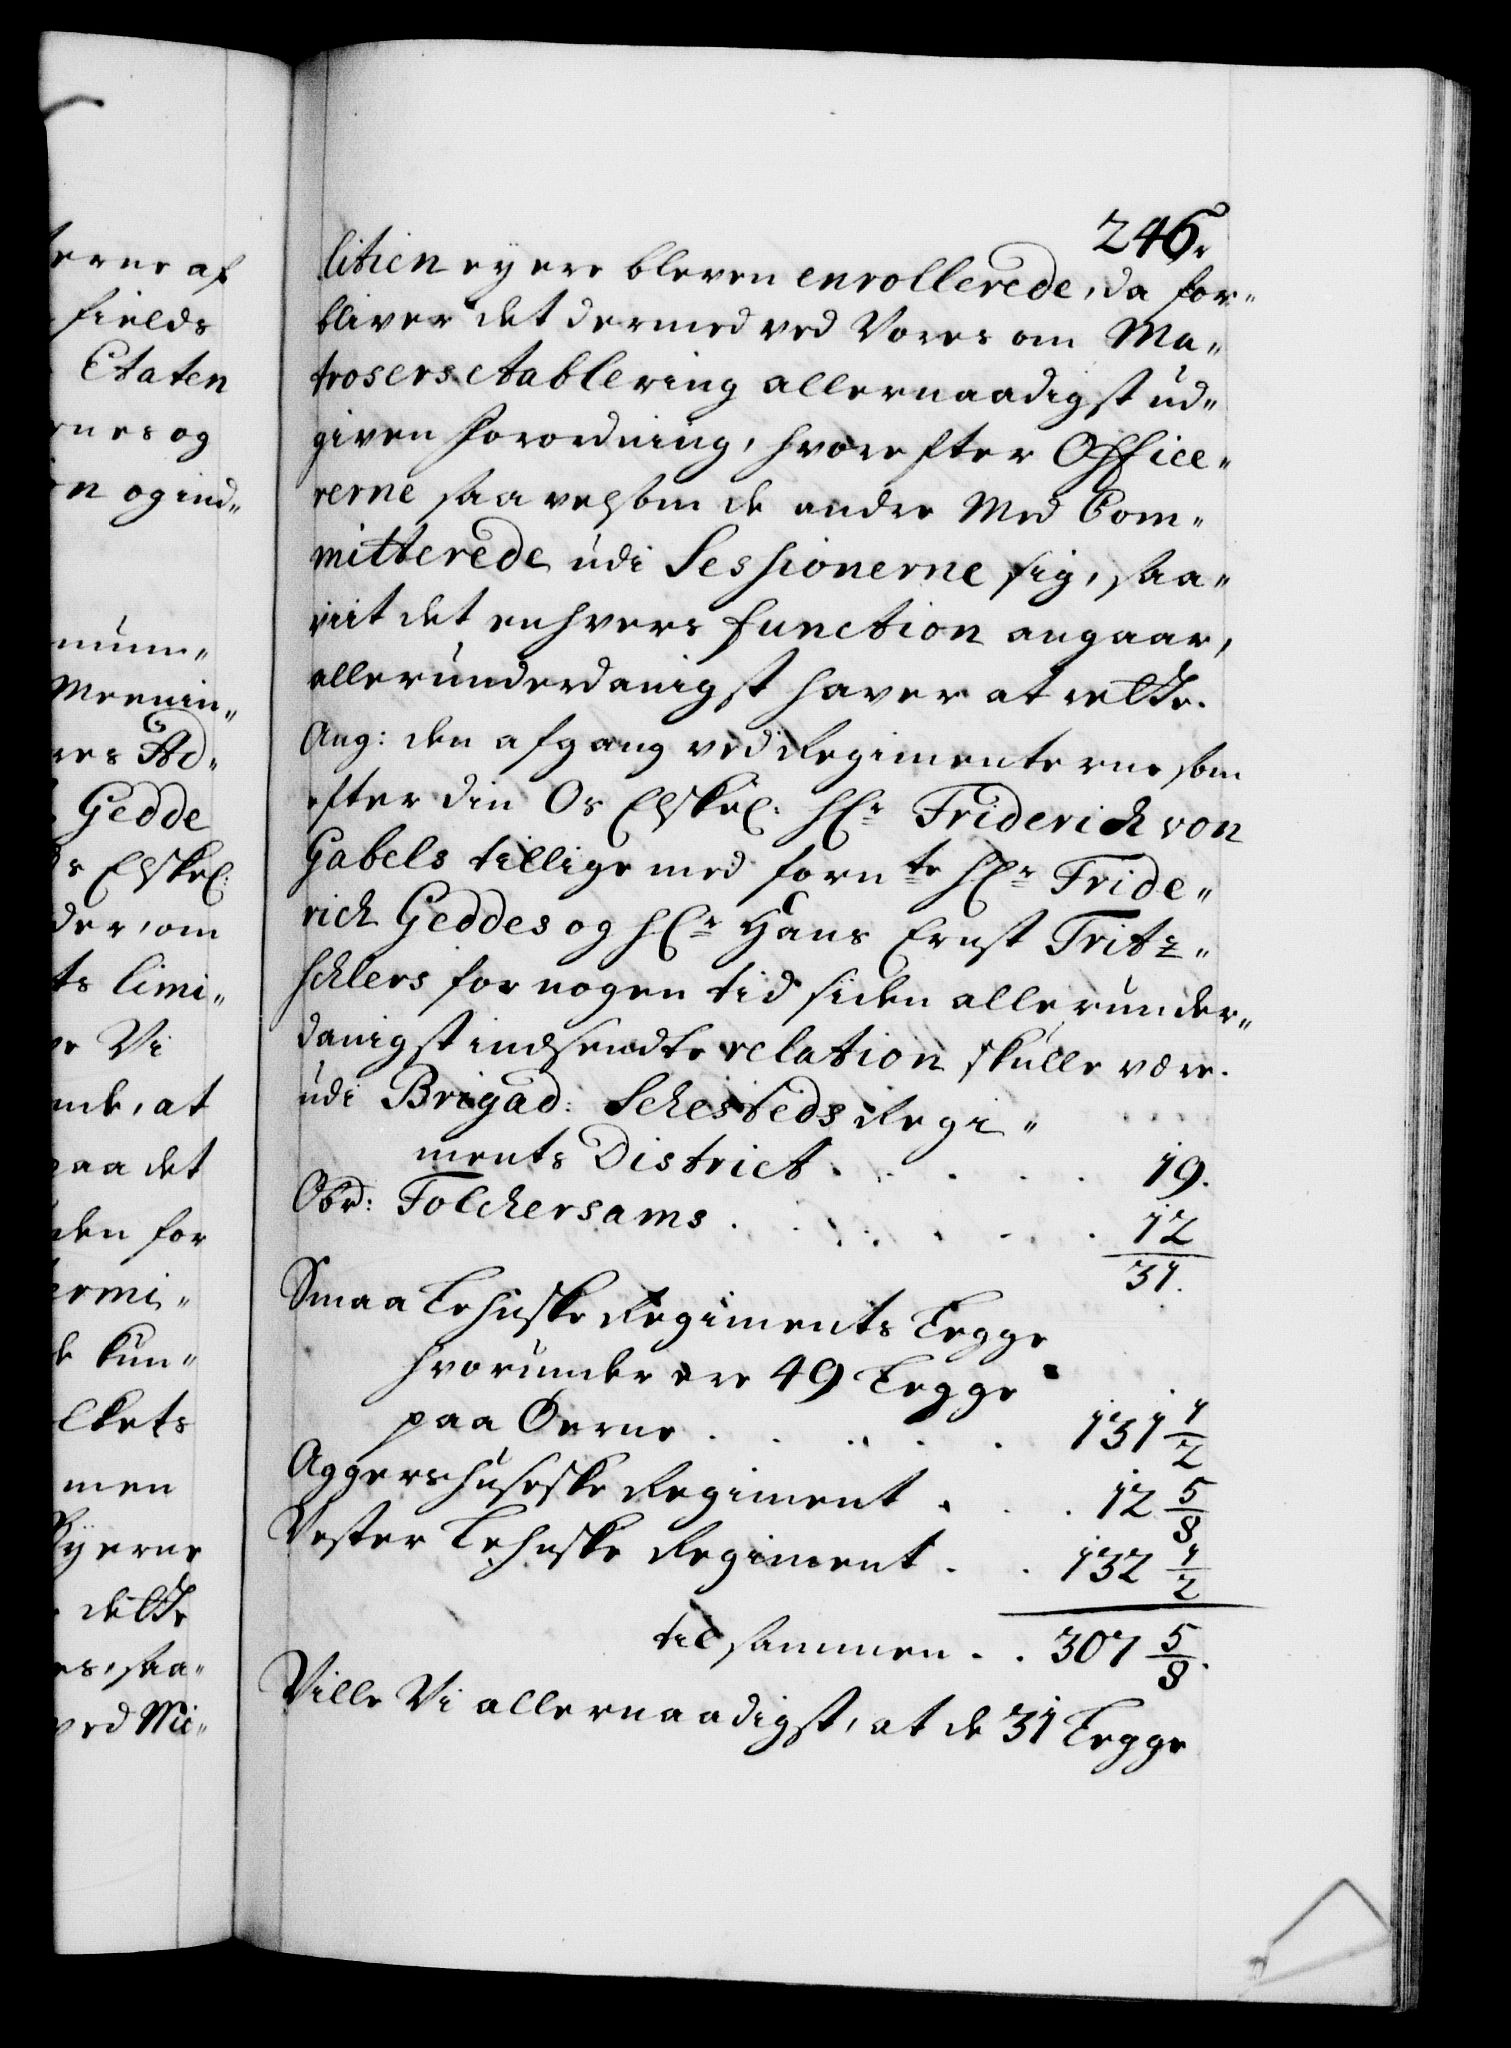 246.
litien ey ere bleven enrollerede, da for-
bliver det dermed ved Vores om Ma-
trosers etablering allernaadigst ud-
given Forordning, hvorefter Office-
rerne saavelsom de andre Med Com-
mitterede udi Sessionerne sig, saa-
vit det enhvers function angaar,
allerunderdanigst haver at rette.
Ang: den afgang ved Regimenterne som
efter din Os Elskel: Hr Friderich von
Gabels tillige med fornte Hr Fride-
rich Geddes og Hr Hans Ernst Tritz-
schlers for nogen tid siden allerunder-
danigst indsendte relation skulle være.
udi Brigad: Schesteds Regi-
ments District . . . . . 19.
Obr: Folckersams . . . . . . 12
31.
Smaa Lehnske Regiments Legge
hvorunder ere 49 Legge
paa Øerne . . . . . 131 1/2
Aggershusiske Regiment . . . 12 5/8
Vester Lehnske Regiment . . 132 1/2
til sammen . . 307 5/8.
Ville Vi allernaadigst, at de 31 Legge
erne af
fields
Etaten
og
og ind-
num-
Meenin-
res Ad-
Gedde
Elskel:
der, om
ts limi-
Vi
ende, at
paa det
den for
ermi-
kun-
men
Byerne
dette
saa-
ved Mi-